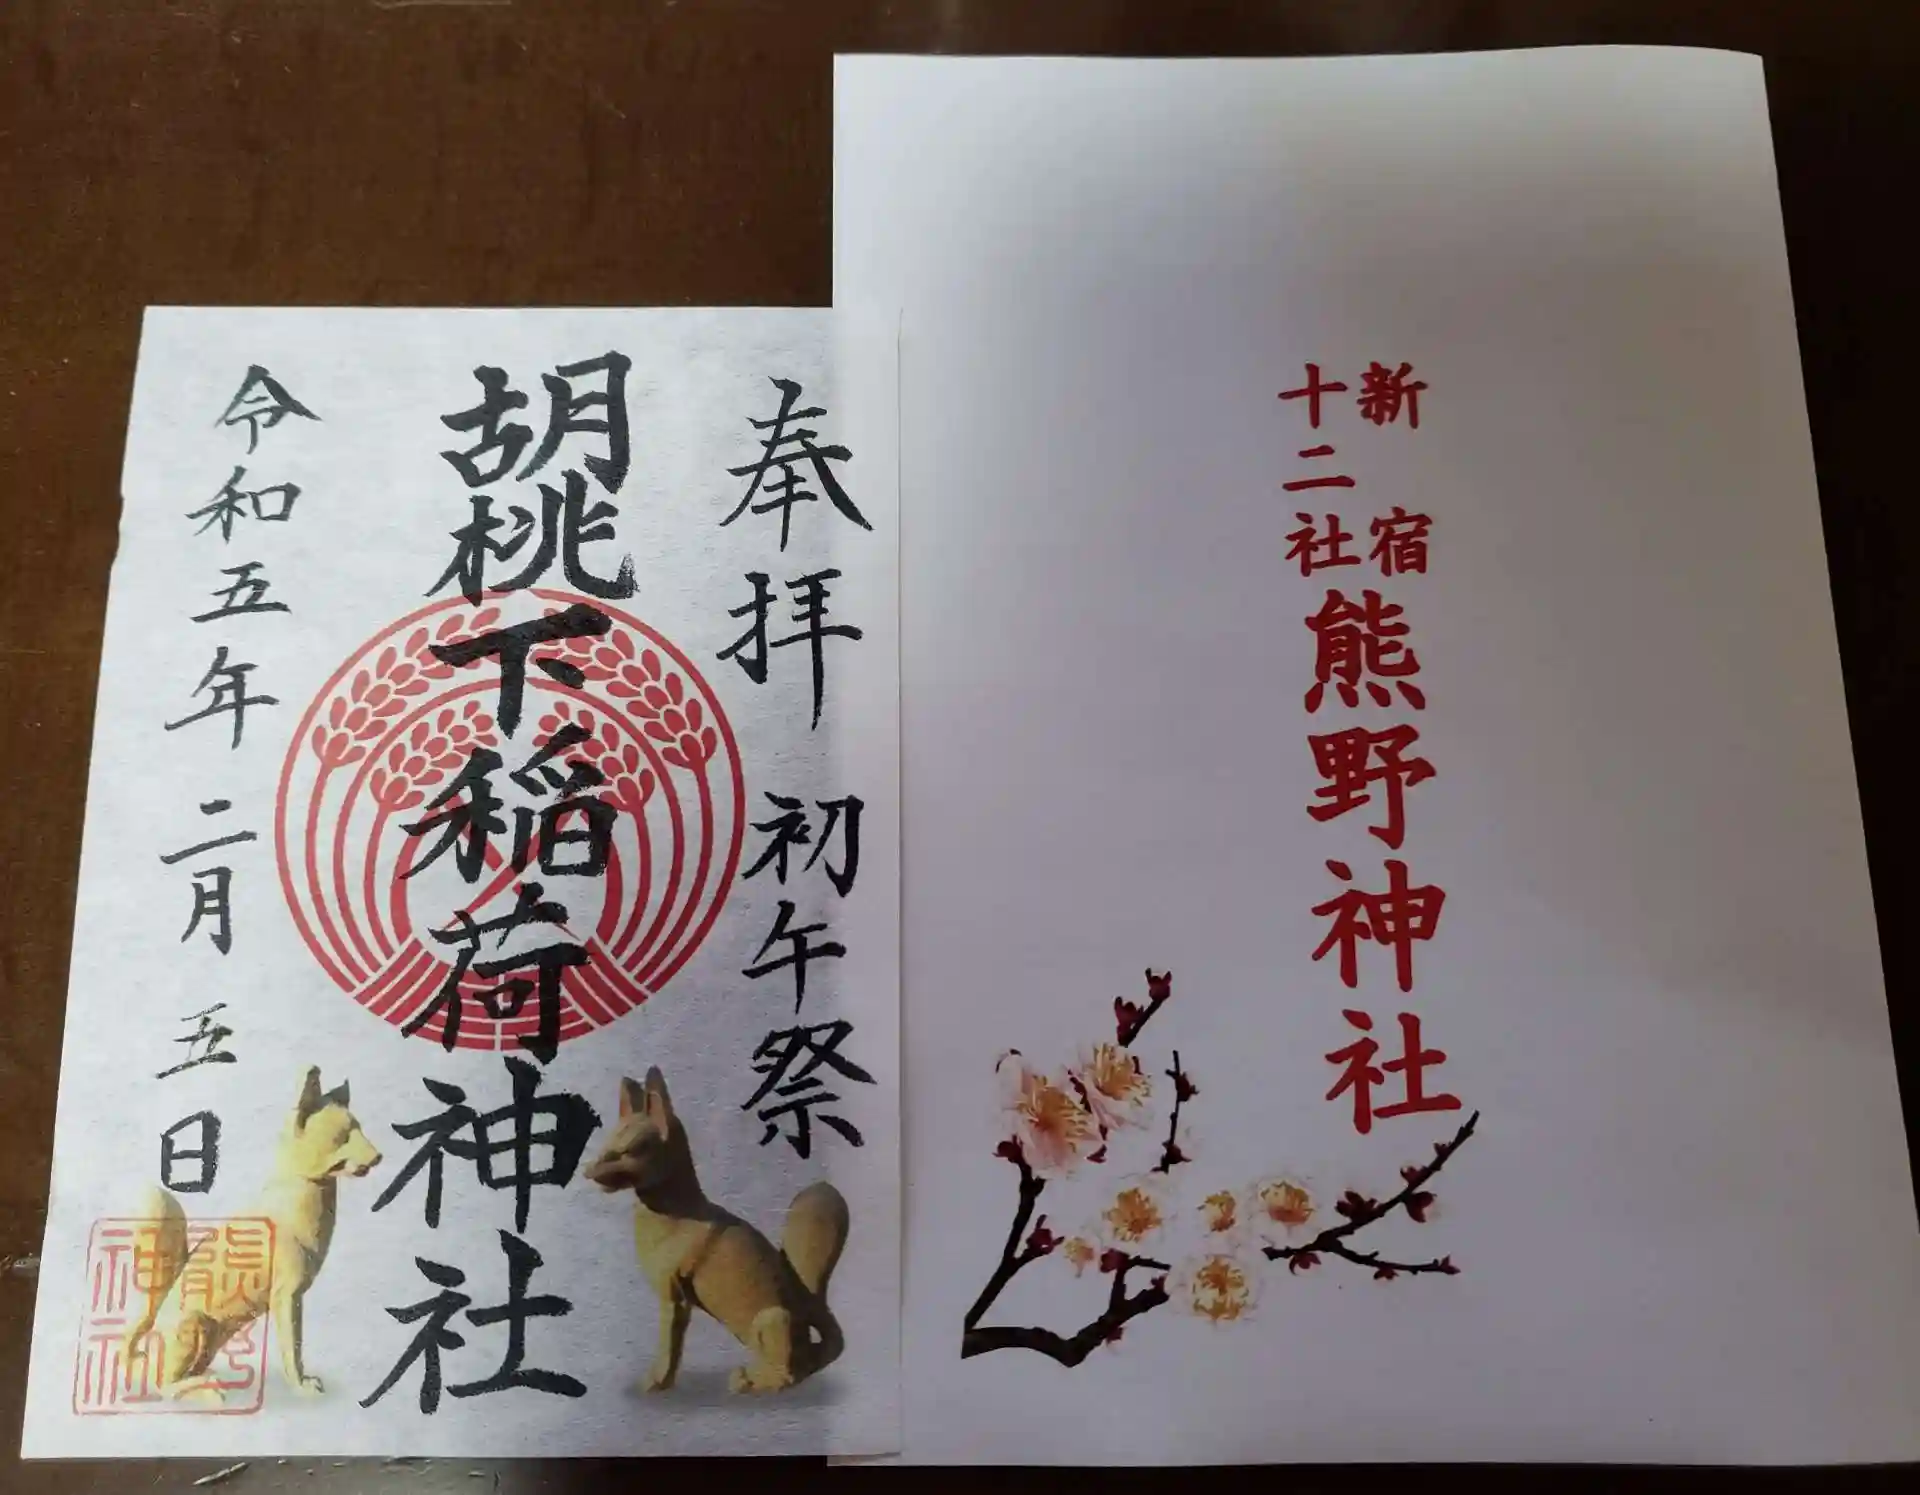 奉拝 初午祭
胡桃下稲荷神社
令和五年二月五日
熊野
神社
新宿
十二社
熊野神社